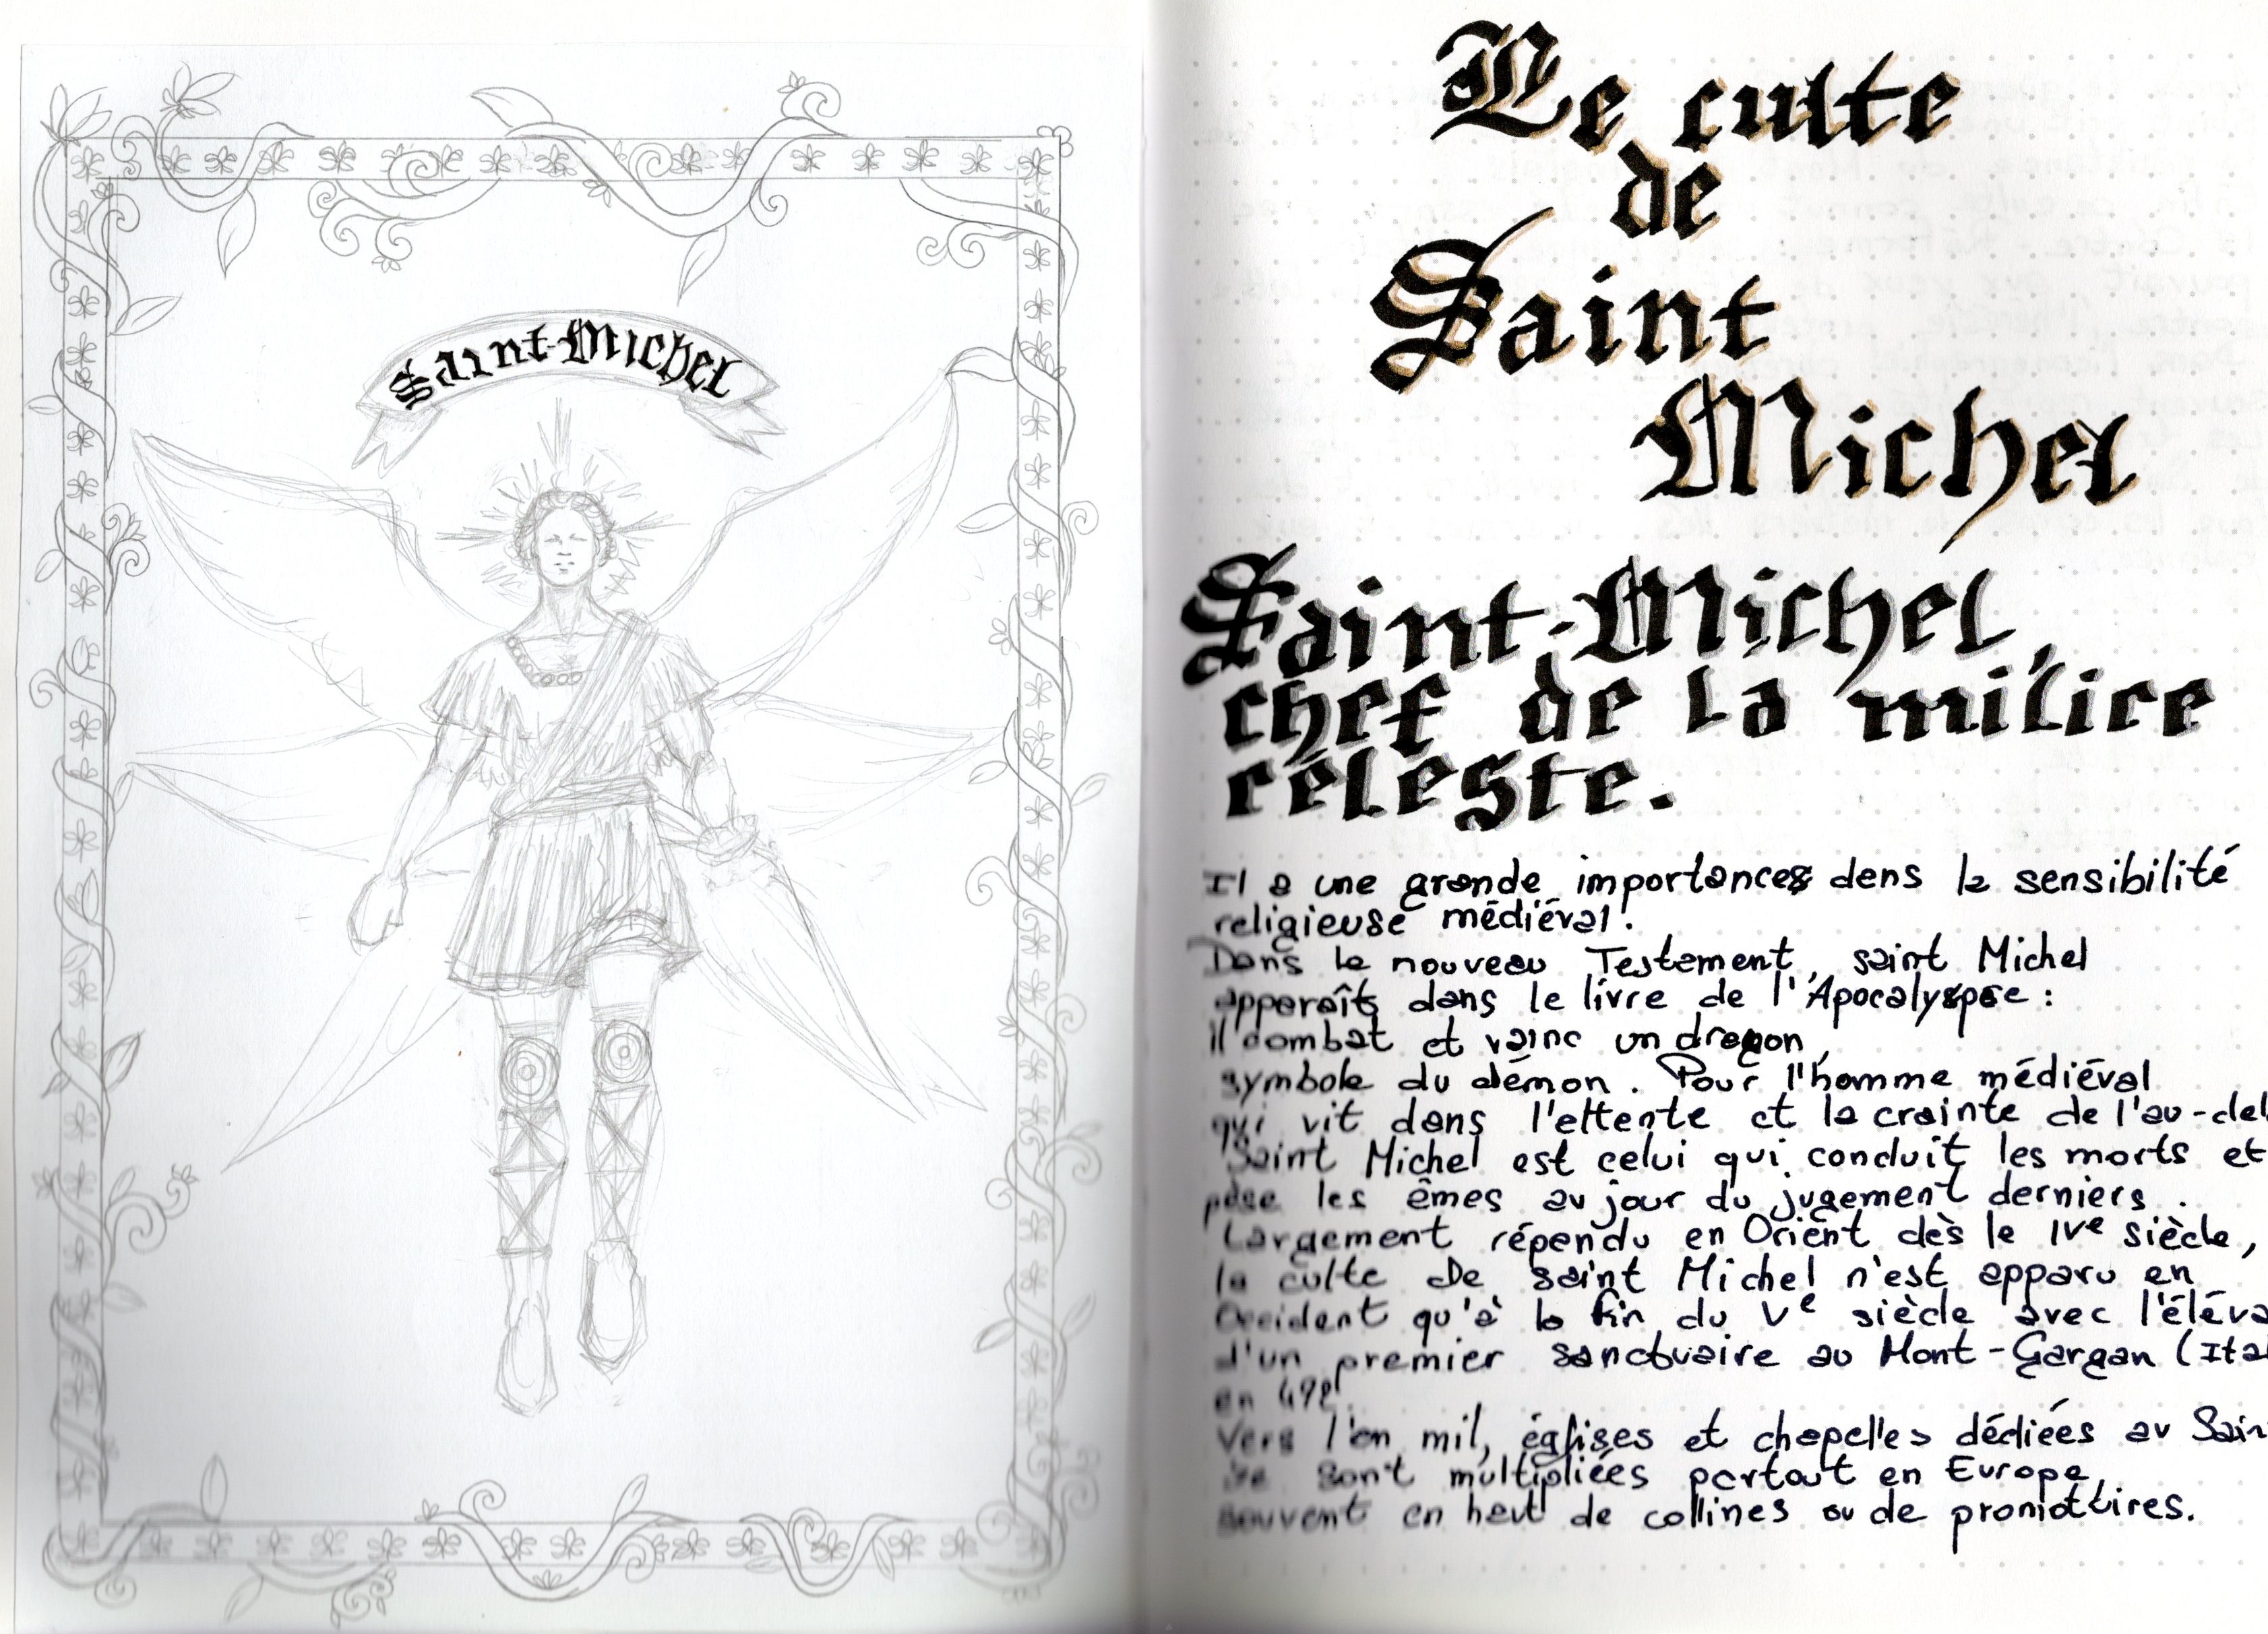 Saint-Michel
Le culte
de
Saint
Michel
Saint-Michel,
chef de la milice
céleste.
Il a une grande importances dans la sensibilité
religieuse médiéval.
Dans le nouveau Testement, saint Michel
apparaîts dans le livre de l'Apocalyspse :
il combat et vainc un dragon,
symbole du démon. Pour l'homme médiéval
qui vit dans l'attente et la crainte de l'au-del
Saint Michel est celui qui conduit les morts et
pèse les âmes au jour du jugement derniers.
Largement répendu en Orient dès le IVe siècle,
la culte De saint Michel n'est apparu en
Occident qu'à la fin du Ve siècle avec l'éléva
d'un premier sanctuaire au Mont-Gargan (Ita
en 492.
Vers l'an mil, églises et chapelles dédiées au Sain
se sont multipliées partout en Europe,
souvent en haut de collines ou de promottires.